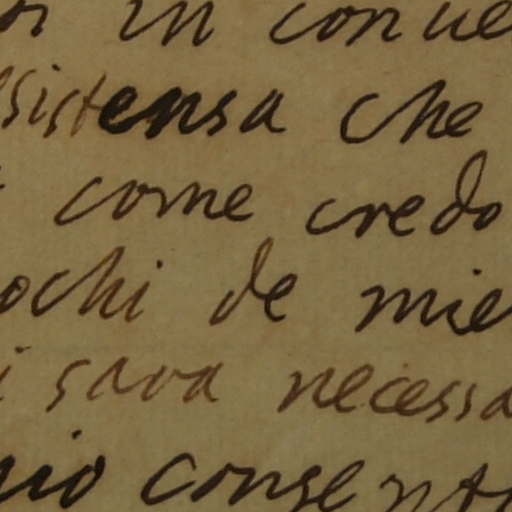 in conve
sistensa che
come credo
ochi de mie
i sara necessa
io consent